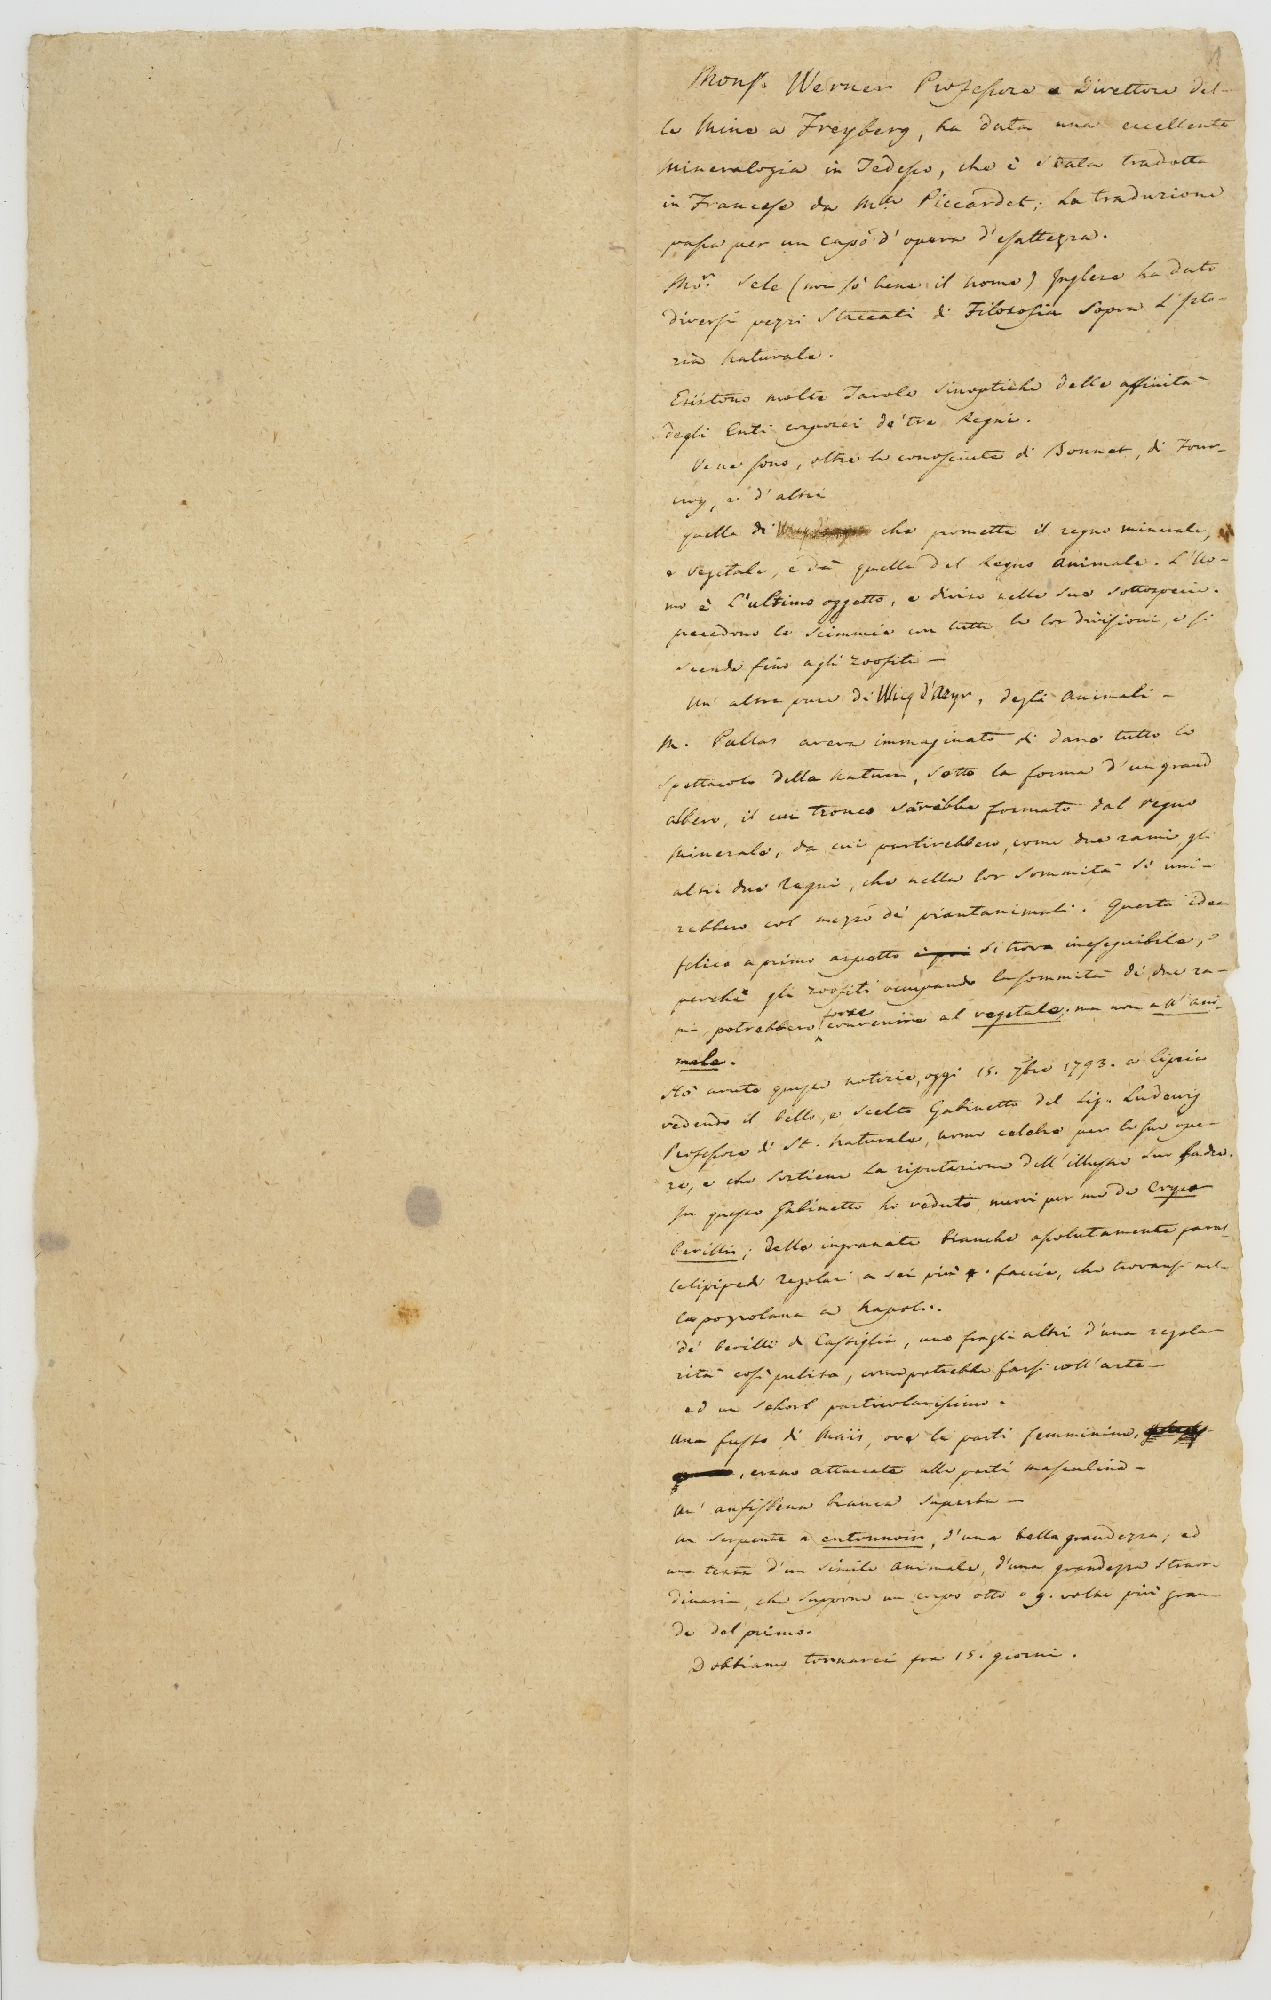 Mons.r Werner Professore e Direttore del-
le Mine a Freyberg, ha data una eccellente
Mineralogia in Tedesco, che è stata tradotta
in Francese da M.de Piccardet; La traduzione
passa per un capo d'opera d'esattezza.
Mo.r Sele (non sò bene il nome) Inglese ha dato
diversi pezzi staccati di Filosofia sopra L'Isto-
ria naturale.
Esistono molte Tavole sinoptiche delle affinità
degli Enti corporei de' tre Regni.
Ve ne sono, oltre le conosciute di Bonnet, di Four-
croy, e d'altri
quella di che premette il regno minerale,
e vegetale, e dà quella del Regno animale. L'Uo-
mo è L'ultimo oggetto, e diviso nelle sue sottospecie.
precedono le Scimmie con tutte le lor divisioni, e si
scende fino agli zoofiti —
Un' altra pure di Vicq d'Azyr, degli Animali —
M. Pallas aveva immaginato di dare tutto lo
spettacolo della natura, sotto la forma d'un grand
albero, il cui tronco sarebbe formato dal regno
minerale, da cui partirebbero, come due rami, gli
altri due Regni, che nella lor sommità si uni-
rebbero col mezzo de' piantanimali. Questa idea
felice a primo aspetto è poi si trova ineseguibile,
perchè gli zoofiti occupando la sommità di due ra-
mi, potrebbero forse convenire al vegetale; ma non all'ani-
male.
Hò avute queste notizie, oggi 15. 7bre 1793. a Lipsia
vedendo il bello, e scelto Gabinetto del Sig.r Ludewig
Professore di St. Naturale, uomo celebre per le sue ope-
re, e che sostiene La riputazione dell'illustre suo padre.
In questo Gabinetto ho veduto nuovi per me de
berillii; delle ingranate bianche assolutamente paral-
lelipipedi regolari a sei più faccie, che trovansi nel-
la pozzolana a Napoli.
de' berilli di Castiglia, uno fragli altri d'una regola-
rità così pulita, come potrebbe farsi coll'arte —
ed un Schorl particolarissimo.
Una fusto di Maiis, ove le parti femminine,
, erano attaccate alle parti masculine —
Un' anfisbena bianca superba —
un serpente a entonnoir, d'una bella grandezza; ed
una testa d'un simile animale, d'una grandezza straor-
dinaria, che suppone un corpo otto o 9. volte più gran-
de del primo.
Dobbiamo tornarci fra 15. giorni.